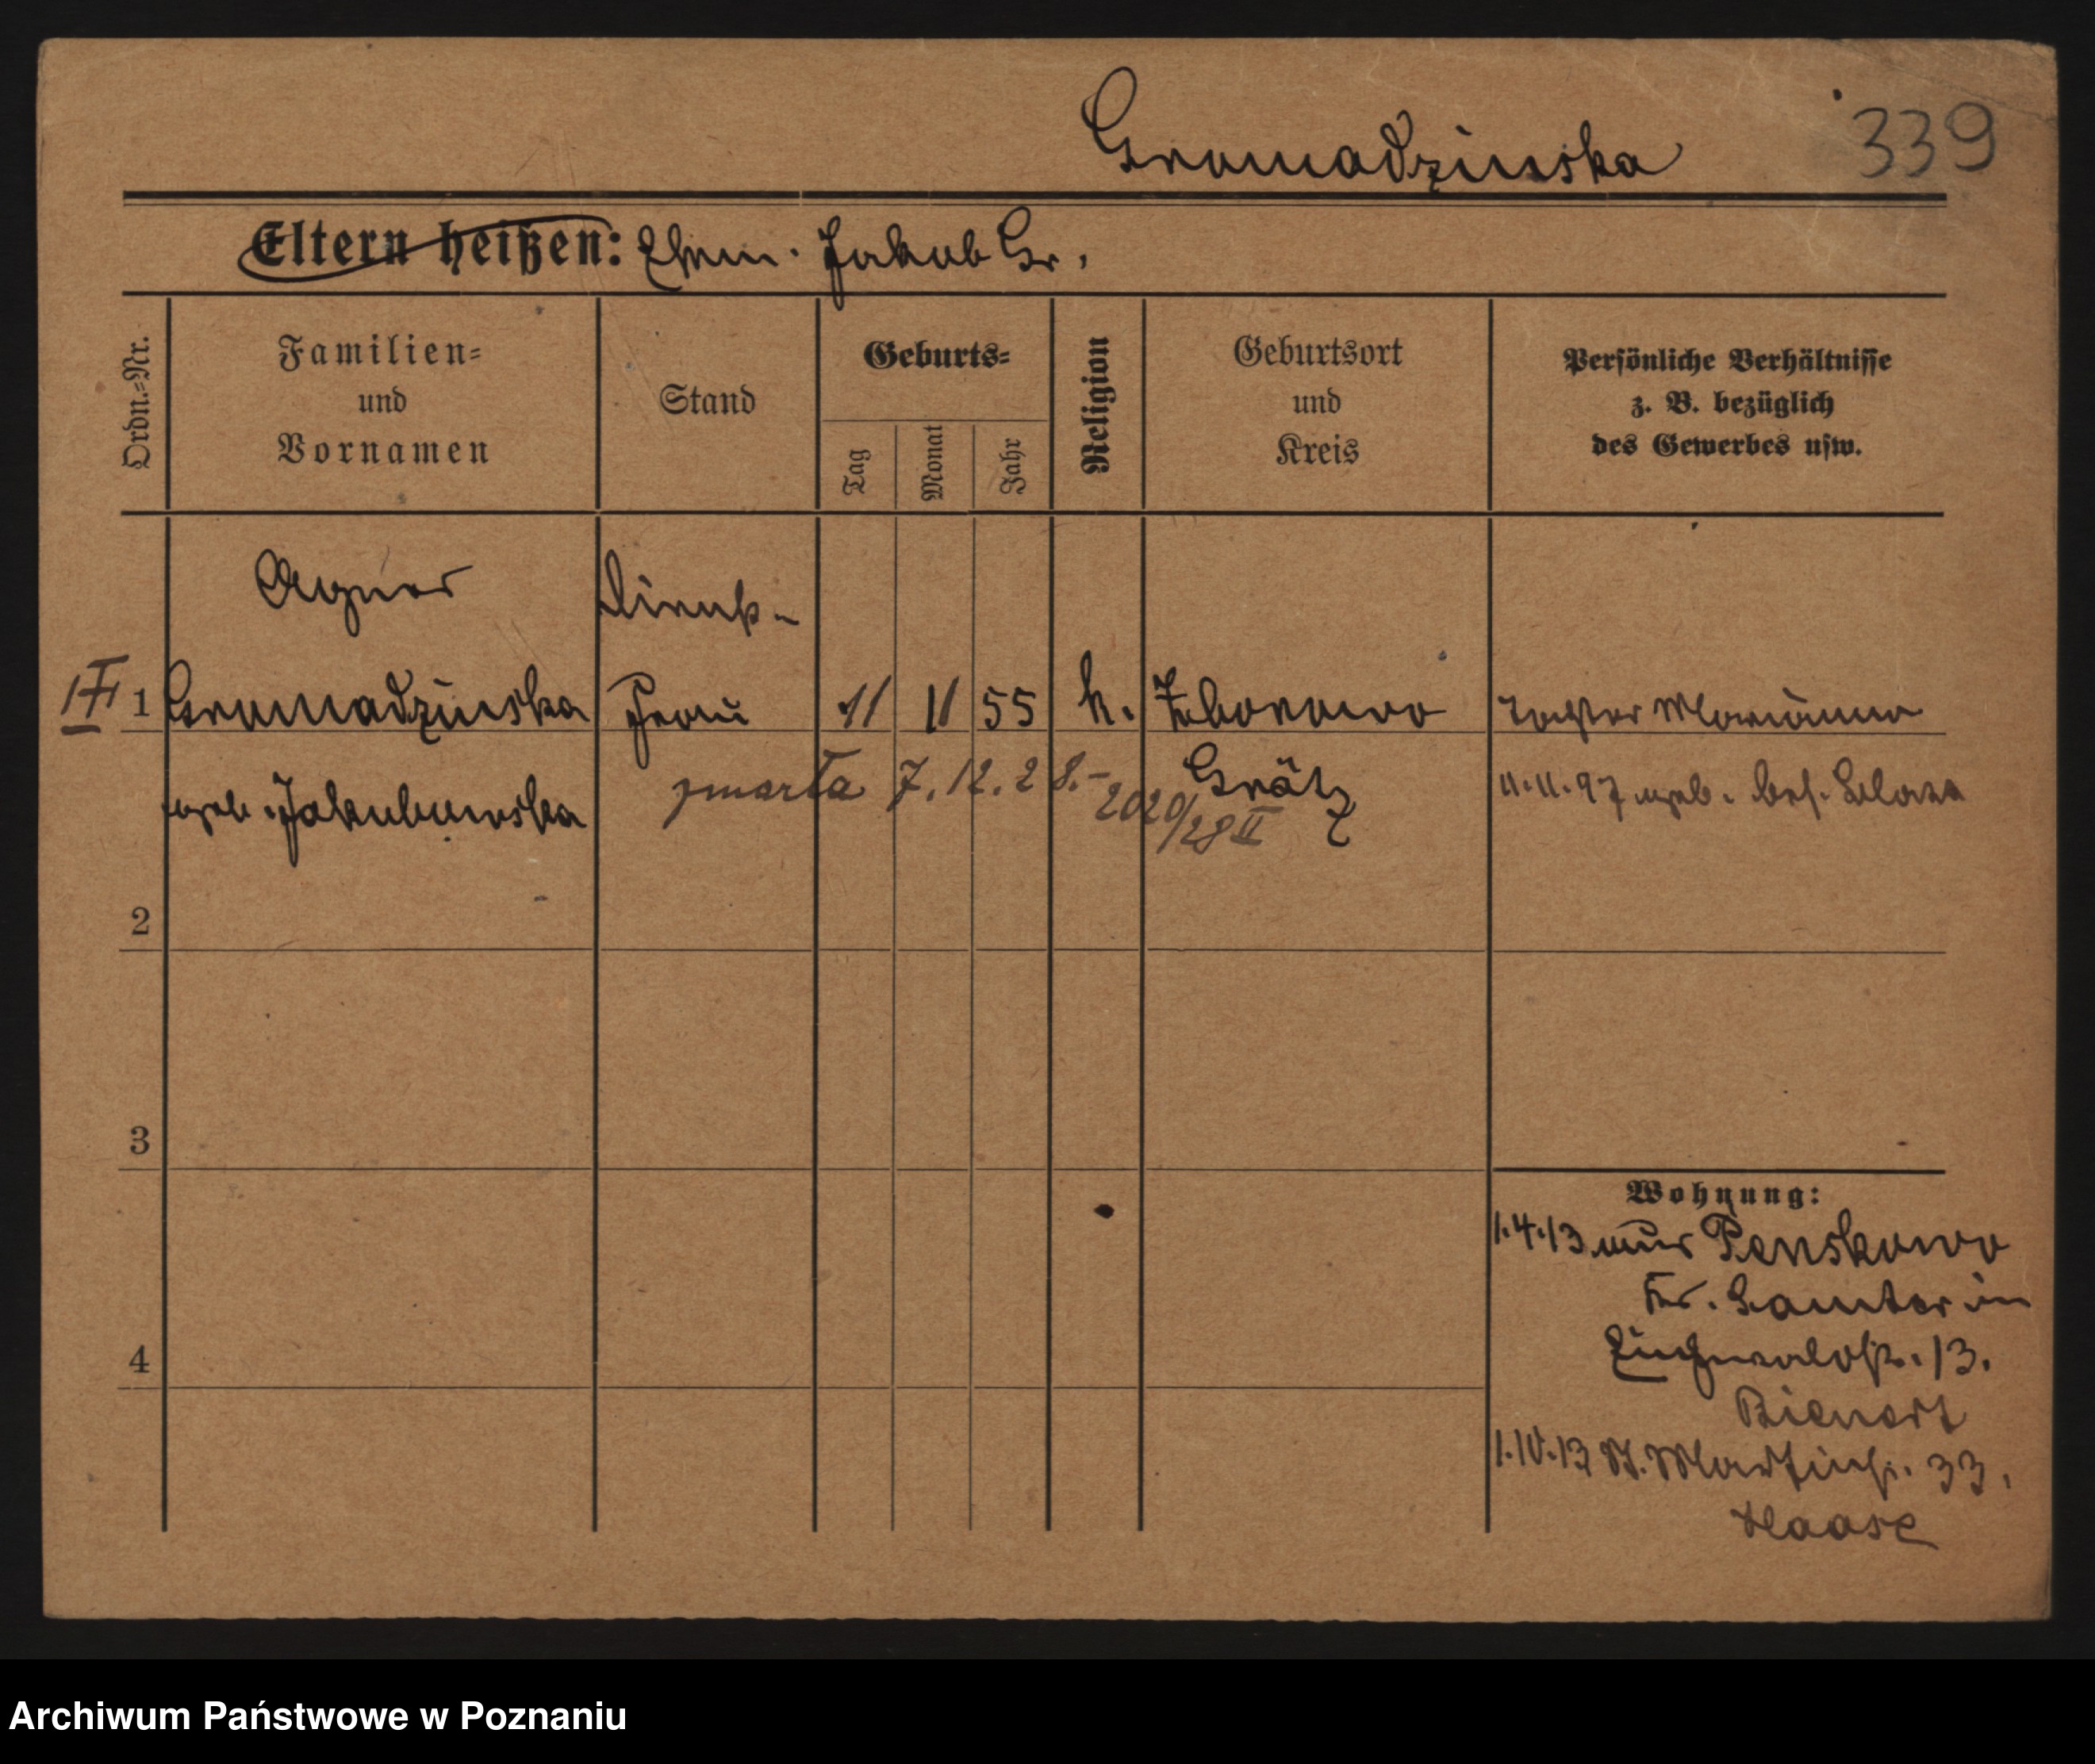 Gromadzinska 339
Eltern heißen: Ehem. Jakob Gr.
Ordn.-Nr.
Familien-
und
Vornamen
Stand
Geburts-
Tag
Monat
Jahr
Religion
Geburtsort
und
Kreis
Persönliche Verhältnisse
z. B. bezüglich
des Gewerbes usw.
Agnes
Dienst-
1 Gromadzinska Frau 11 11 55 k. Zborowo Tochter Marianna
geb. Jakubowska
zmarła 7.12.28.- 2020/28 II
Grätz
11.11.97 geb. bes.
2
3
4
Wohnung:
1.4.13 aus Penskowo
Kr. Samter in
13.
Bienert
1.10.13 St. Martinstr. 33,
Haase
Archiwum Państwowe w Poznaniu